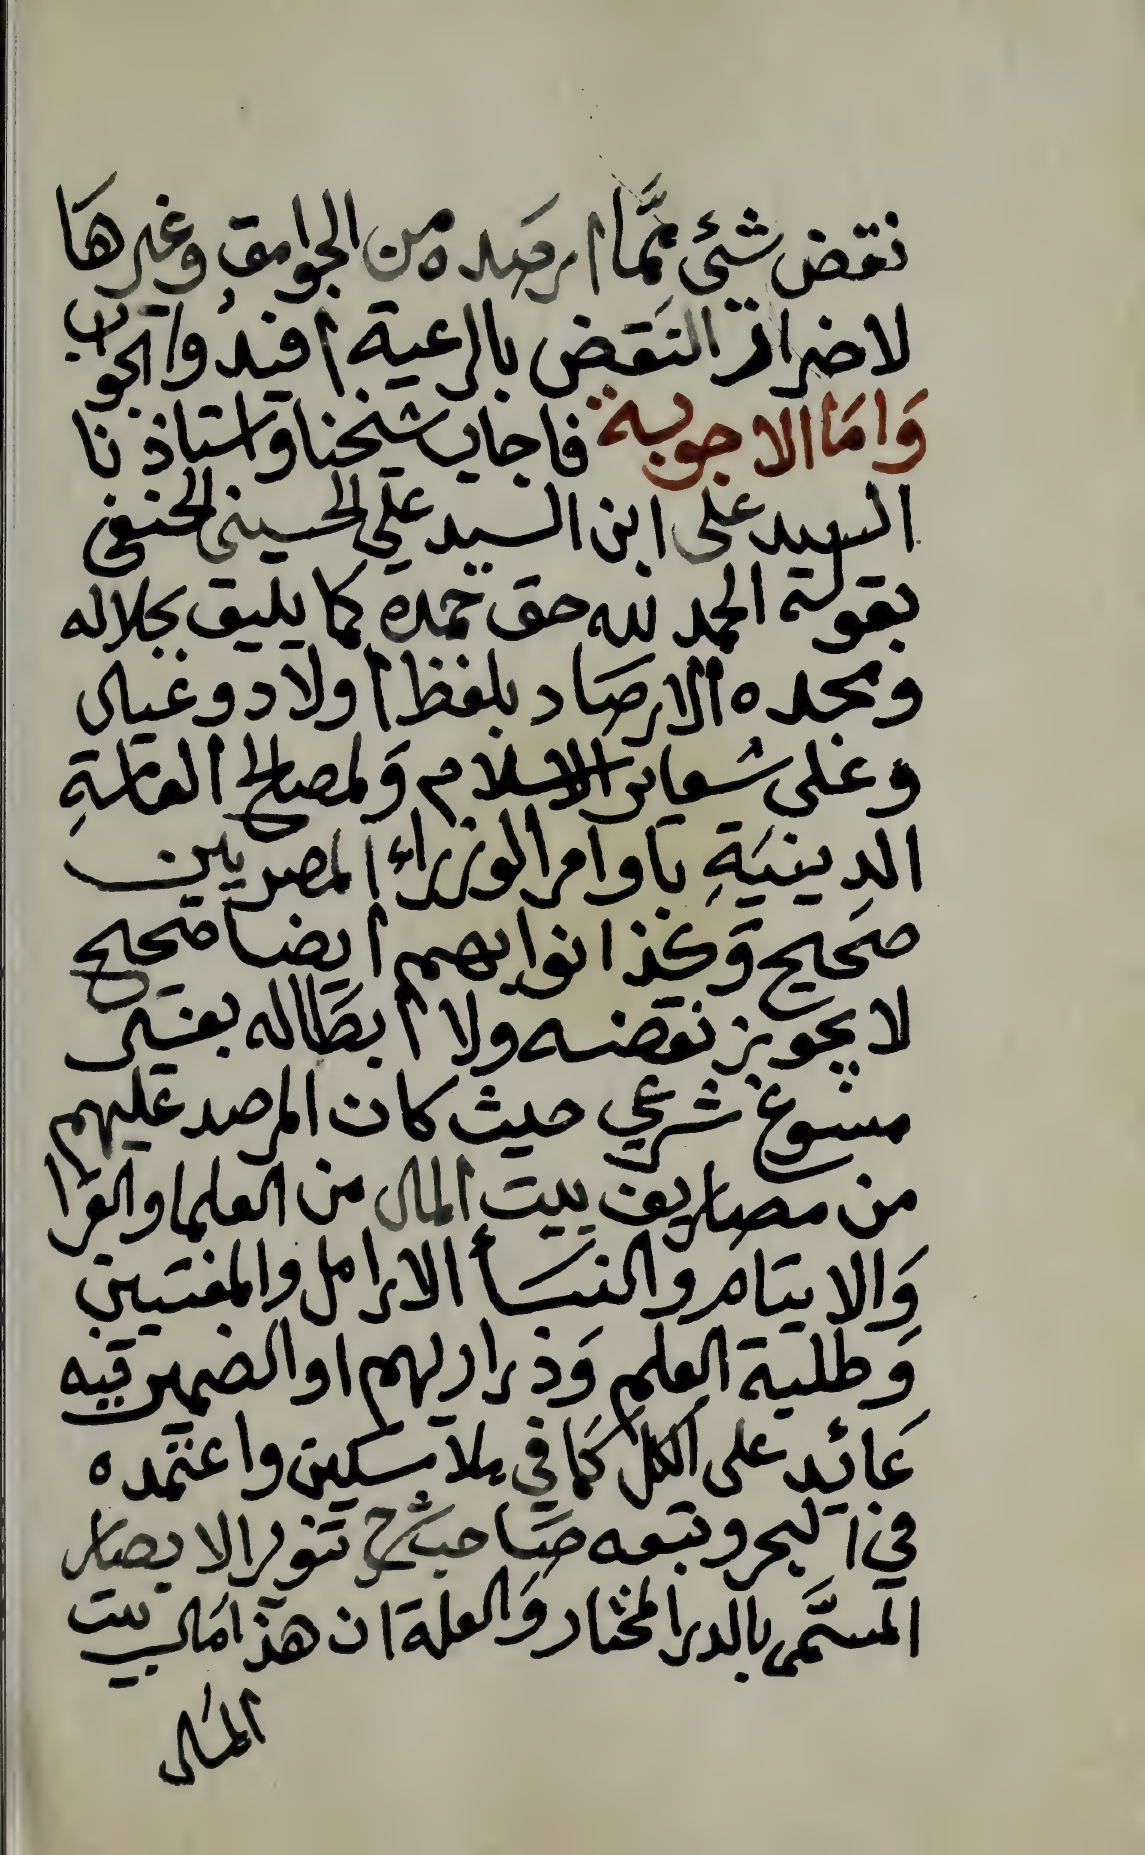 نقض شئي مما ارصده من الجوامق وغيرها
لاضرار النقض بالرعية أفيدوا الجواب
وَامَا الاجوبة فاجاب شيخنا واستاذنا
السيد على ابن السيد علي الحسيني الحنفي
بقوله الحمد لله حق حمده كما يليق بجلاله
ومجده الارصاد بلفظ أولاد وعيال
وعلى شعاير الاسلام وَلمصالح العامة
الدينيَةِ باوامر الوزراء المصريين
صحيح وَكذا نوابهم أيضا صحيح
لا يجوز نقضه ولا أبطاله بغير
مسوغ شرعي حيث كان المرصد عليهم
من مصاريف بيت المال من العلما والقرا
وَالايتام والنسَأ الارامل والمفتيين
وَطلبة العلم وَذراريهم او الضمير فيه
عَائد على الكل كمَا في ملا مسكين واعتمده
في البحر وتبعه صَاحب شرح تنوير الابصار
المسَّمى بالدر المختار وَالعلة ان هذا مَال بيت
المال